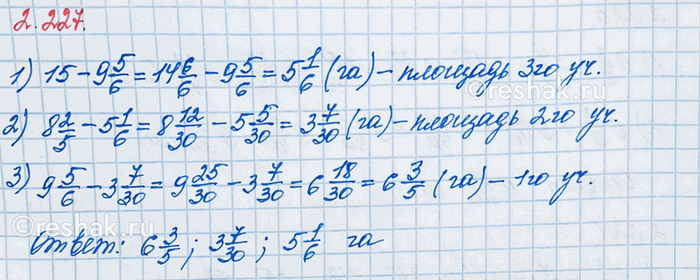 2.227.
1) 15 − 9 5/6 = 14 6/6 − 9 5/6 = 5 1/6 (га) – площадь 3го уч.
2) 8 2/5 − 5 1/6 = 8 12/30 − 5 5/30 = 3 7/30 (га) – площадь 2го уч.
3) 9 5/6 − 3 7/30 = 9 25/30 − 3 7/30 = 6 18/30 = 6 3/5 (га) – 1го уч.
Ответ: 6 3/5; 3 7/30; 5 1/6 га
reshak.ru